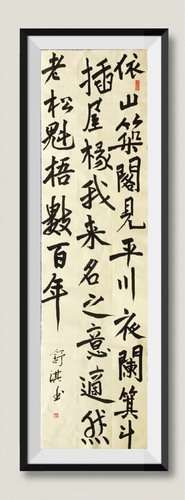 依山築閣見平川夜闌箕斗
插屋椽我来名之意適然
老松魁梧數百年
舒淇书